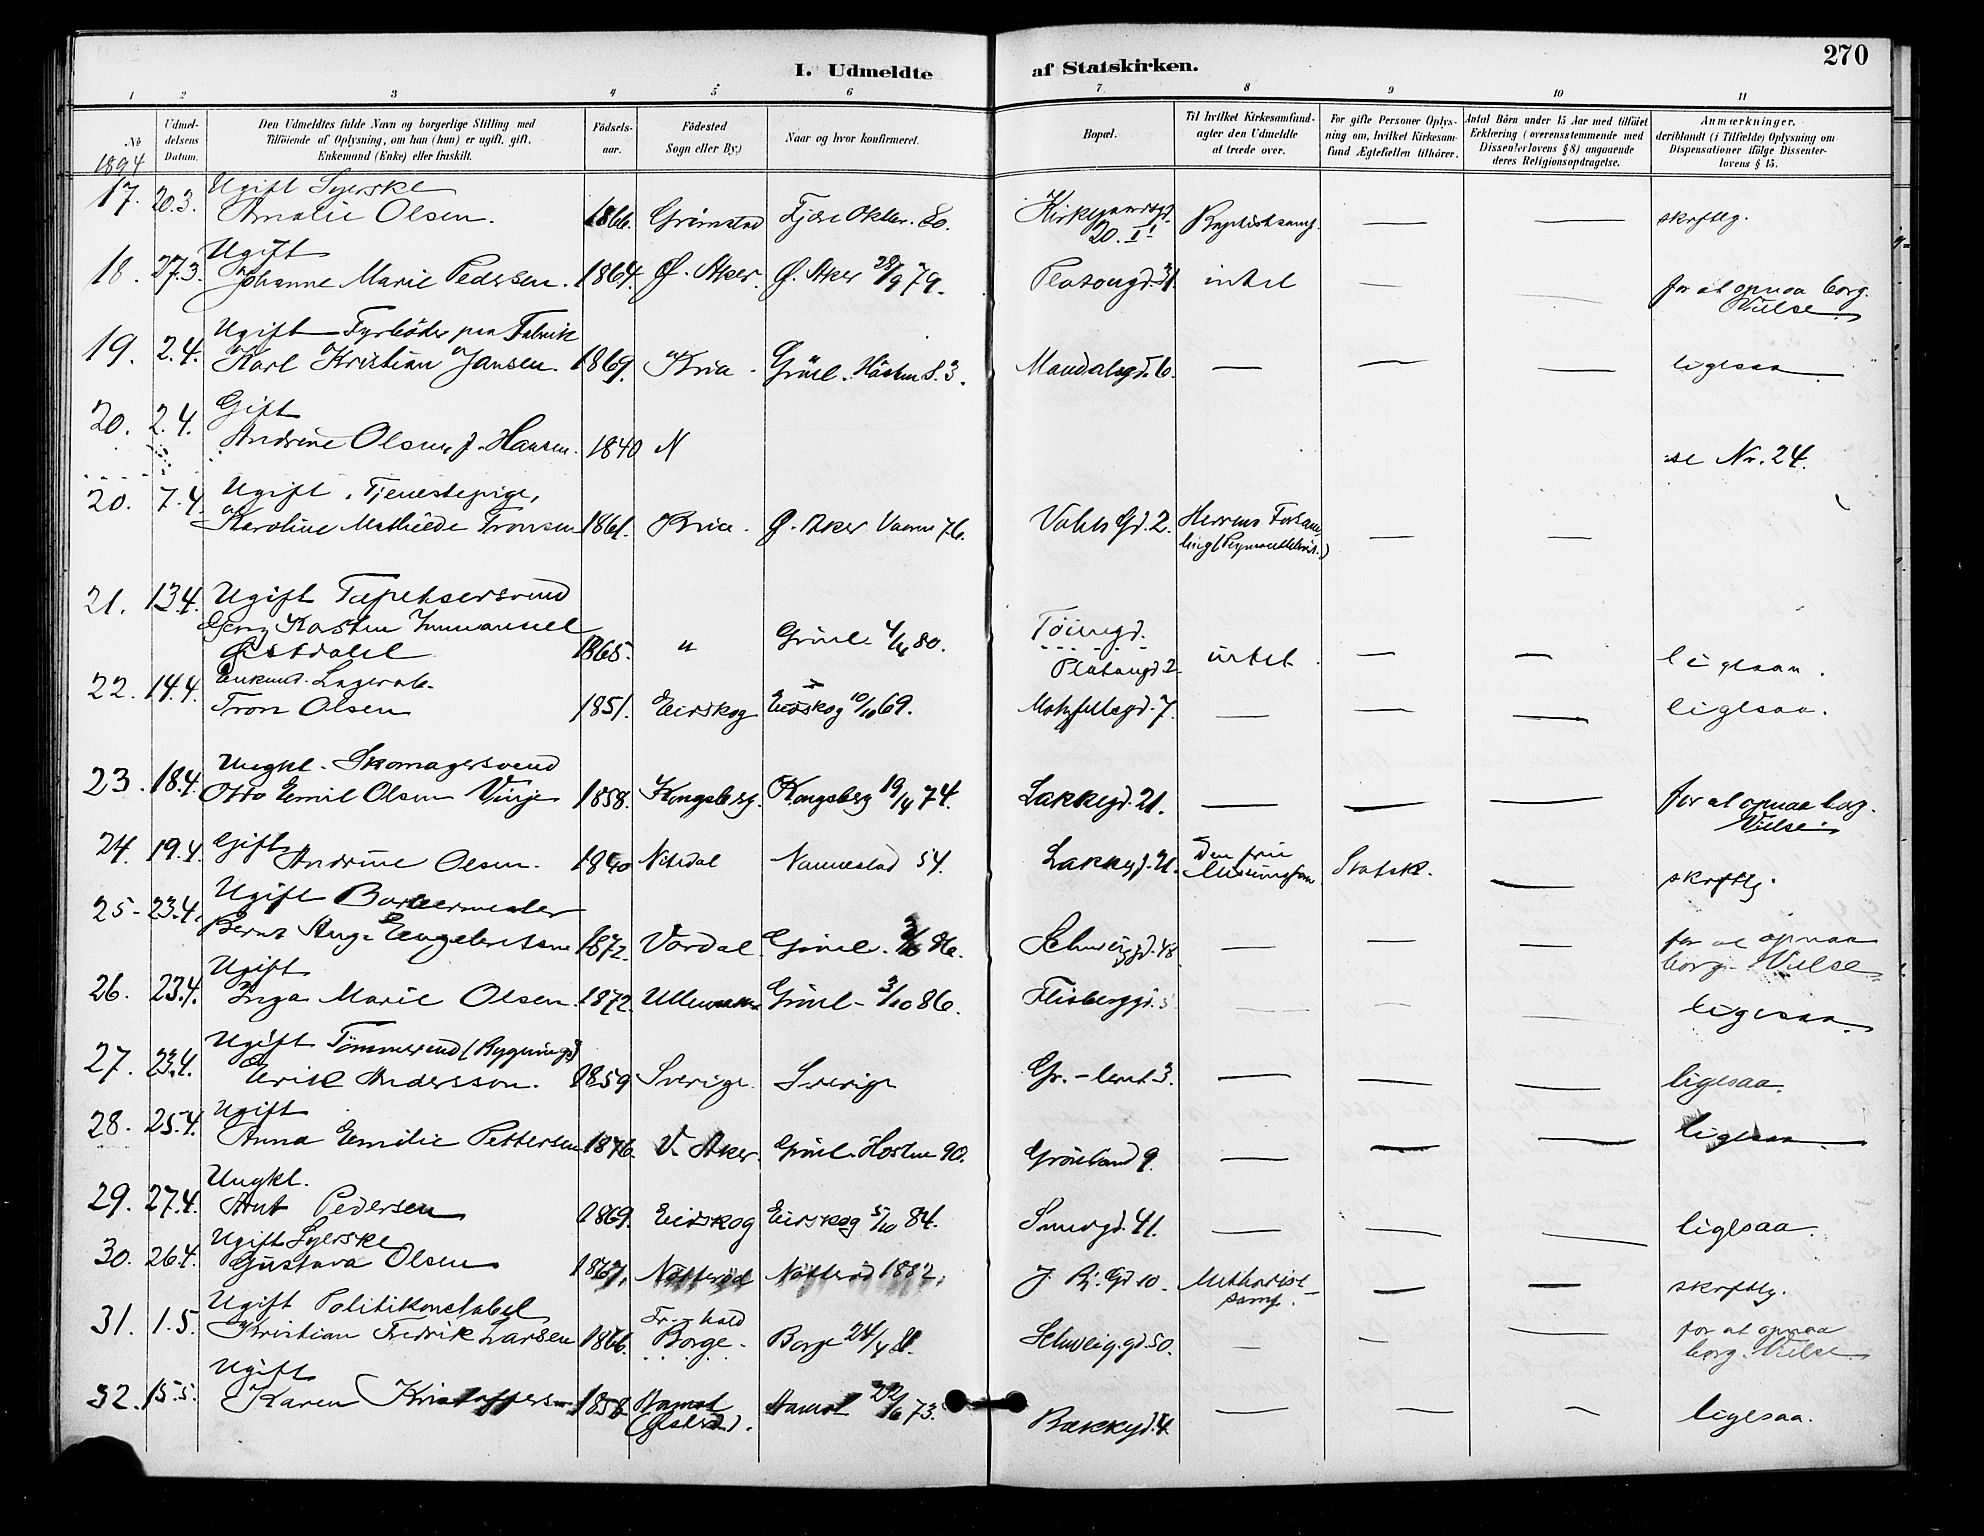 270
I. Udmeldte af Statskirken.
1 2 3 4 5 6 7 8 9 10 11
No 1894
Udmeldelsens Datum.
Den Udmeldtes fulde Navn og borgerlige Stilling med Tilföiende af Oplysning, om han (hun) er ugift, gift, Enkemand (Enke) eller fraskilt.
Födselsaar.
Födested Sogn eller By.)
Naar og hvor konfirmeret.
Bopæl.
Til hvilket Kirkesamfund agter den Udmeldte at træde over.
For gifte Personer Oplysning om, hvilket Kirkesamfund Ægtefællen tilhörer.
Antal Börn under 15 Aar med tilföiet Erklæring (overensstemmende med Dissenterlovens § 8) angaaende deres Religionsopdragelse.
Anmærkninger, deriblandt (i Tilfælde) Oplysning om Dispensationer ifölge Dissenterlovens § 15.
17. 20.3. Ugift Syerske
Amalie Olsen. 1866. Grimstad Fjære Oktbr. 80. Kirkegaardsgd. 20. II Baptistsamf. — — skrftlg.
18. 27.3. Ugift
Johanne Marie Pedersen. 1864. Ø. Aker. Ø. Aker 28/9 79. Platougd. 31. intet — — for at opnaa borg. Vielse.
19. 2.4. Ugift Fyrböder paa Fabrik
Karl Kristian Jansen. 1869. Kria. Grönl. Hösten 83. Mandalsgd. 6. — — — ligesaa
20. 2.4. Gift
Andrine Olsen, f. Hansen. 1840 N se Nr. 24.
20. 7.4. Ugift, Tjenestepige,
Karoline Mathilde Tronsen 1861. Kria. Ø. Aker Vaaren 76. Vahls Gd. 2. Herrens Forsamling — —
21. 13.4. Ugift Tapetsersvend
Georg Karsten Immanuel
Østdahl 1865. " Grönl. 4/4 80. Töiengd. Platougd. 2 intet — — ligesaa.
22. 14.4. Enkemd. Lagerarb.
Tron Olsen 1851. Eidskog Eidskog 10/10 69. Motzfeldtsgd. 7. — — — ligesaa.
23. 18.4. Ungkl. Skomagersvend
Otto Emil Olsen Vinje 1858. Kongsberg. Kongsberg 19/4 74. Lakkegd. 21. — — — for at opnaa borg. Vielse.
24. 19.4. Gift
Andrine Olsen. 1840 Nitedal Nannestad 54. Lakkegd. 21. Den frie Missionsfor. Statsk. — skrftlg.
25. 23.4. Ugift Barbermester
Bernt Aug. Engebretsen 1872. Vardal. Grönl. 86. Schweiggd. 48 — — — for at opnaa borg. Vielse
26. 23.4. Ugift
Inga Marie Olsen. 1872. Ullensaker Grönl. 3/10 86. Flisberggd. 5 — — — ligesaa.
27. 23.4. Ugift Tömmermd (Bygnings)
Erik Andersson. 1859 Sverige. Sverige Gr.-leret 3. — — — ligesaa.
28. 25.4. Ugift
Anna Emilie Pettersen 1876. V. Aker. Grönl. Hösten 90. Grönland 9. — — — ligesaa.
29. 27.4. Ungkl.
Ant Pedersen 1869. Eidskog Eidskog 5/10 84. Smedgd. 41. — — — ligesaa.
30. 26.4. Ugift Syerske
Gustava Olsen 1867. Nötteröd Nötteröd 1882. J. Bj. Gd 10. Methodistsamf. — — skrftlg.
31. 1.5. Ugift Politikonstabel
Kristian Fredrik Larsen 1866. Fr.hald Borge. Borge 24/4 81. Schweig.gd. 50. — — — for at opnaa borg. Vielse.
32. 15.5. Ugift
Karen Kristoffersen 1858 Aamot (Østerd.). Aamot 22/6 73. Bakkegd. 4 — — — ligesaa.